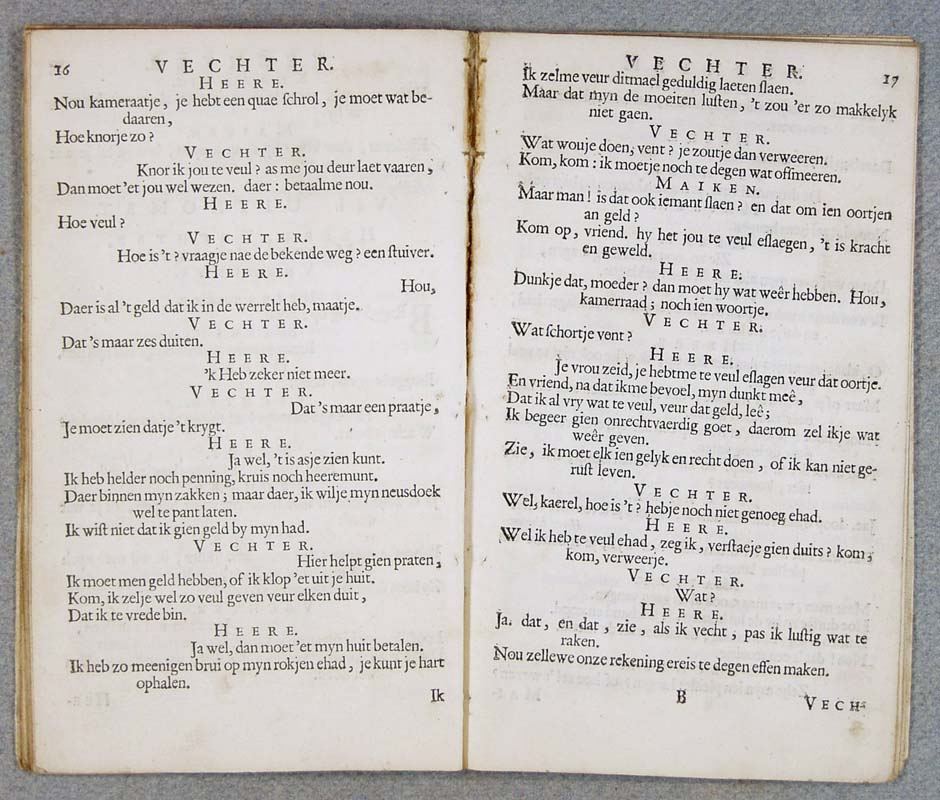 16
VECHTER.
HEERE.
Nou kameraatje, je hebt een quae schrol, je moet wat be-
daaren,
Hoe knorje zo?
VECHTER.
Knor ik jou te veul? as me jou deur laet vaaren,
Dan moet 'et jou wel wezen. daer: betaalme nou.
HEERE.
Hoe veul?
VECHTER.
Hoe is 't? vraagje nae de bekende weg? een stuiver.
HEERE.
Hou,
Daer is al 't geld dat ik in de werrelt heb, maatje.
VECHTER.
Dat 's maar zes duiten.
HEERE.
'k Heb zeker niet meer.
VECHTER.
Dat 's maar een praatje,
Je moet zien datje 't krygt.
HEERE.
Ja wel, 't is asje zien kunt.
Ik heb helder noch penning, kruis noch heeremunt.
Daer binnen myn zakken; maar daer, ik wil je myn neusdoek
wel te pant laten.
Ik wist niet dat ik gien geld by myn had.
VECHTER.
Hier helpt gien praten,
Ik moet men geld hebben, of ik klop 'et uit je huit.
Kom, ik zelje wel zo veul geven veur elken duit,
Dat ik te vrede bin.
HEERE.
Ja wel, dan moet 'et myn huit betalen.
Ik heb zo meenigen brui op myn rokjen ehad, je kunt je hart
ophalen.
Ik
VECHTER.
17
Ik zelme veur ditmael geduldig laeten slaen.
Maar dat myn de moeiten lusten, 't zou 'er zo makkelyk
niet gaen.
VECHTER.
Wat wouje doen, vent? je zoutje dan verweeren.
Kom, kom: ik moetje noch te degen wat offimeeren.
MAIKEN.
Maar man! is dat ook iemant slaen? en dat om ien oortjen
an geld?
Kom op, vriend. hy het jou te veul eslaegen, 't is kracht
en geweld.
HEERE.
Dunkje dat, moeder? dan moet hy wat weêr hebben. Hou,
kamerraad; noch ien woortje.
VECHTER.
Wat schortje vent?
HEERE.
Je vrou zeid, je hebtme te veul eslagen veur dat oortje.
En vriend, na dat ikme bevoel, myn dunkt meê,
Dat ik al vry wat te veul, veur dat geld, leê;
Ik begeer gien onrechtvaerdig goet, daerom zel ikje wat
weêr geven.
Zie, ik moet elk ien gelyk en recht doen, of ik kan niet ge-
rust leven.
VECHTER.
Wel, kaerel, hoe is 't? hebje noch niet genoeg ehad.
HEERE.
Wel ik heb te veul ehad, zeg ik, verstaeje gien duits? kom,
kom, verweerje.
VECHTER.
Wat?
HEERE.
Ja. dat, en dat, zie, als ik vecht, pas ik lustig wat te
raken.
Nou zellewe onze rekening ereis te degen effen maken.
B
VECH-